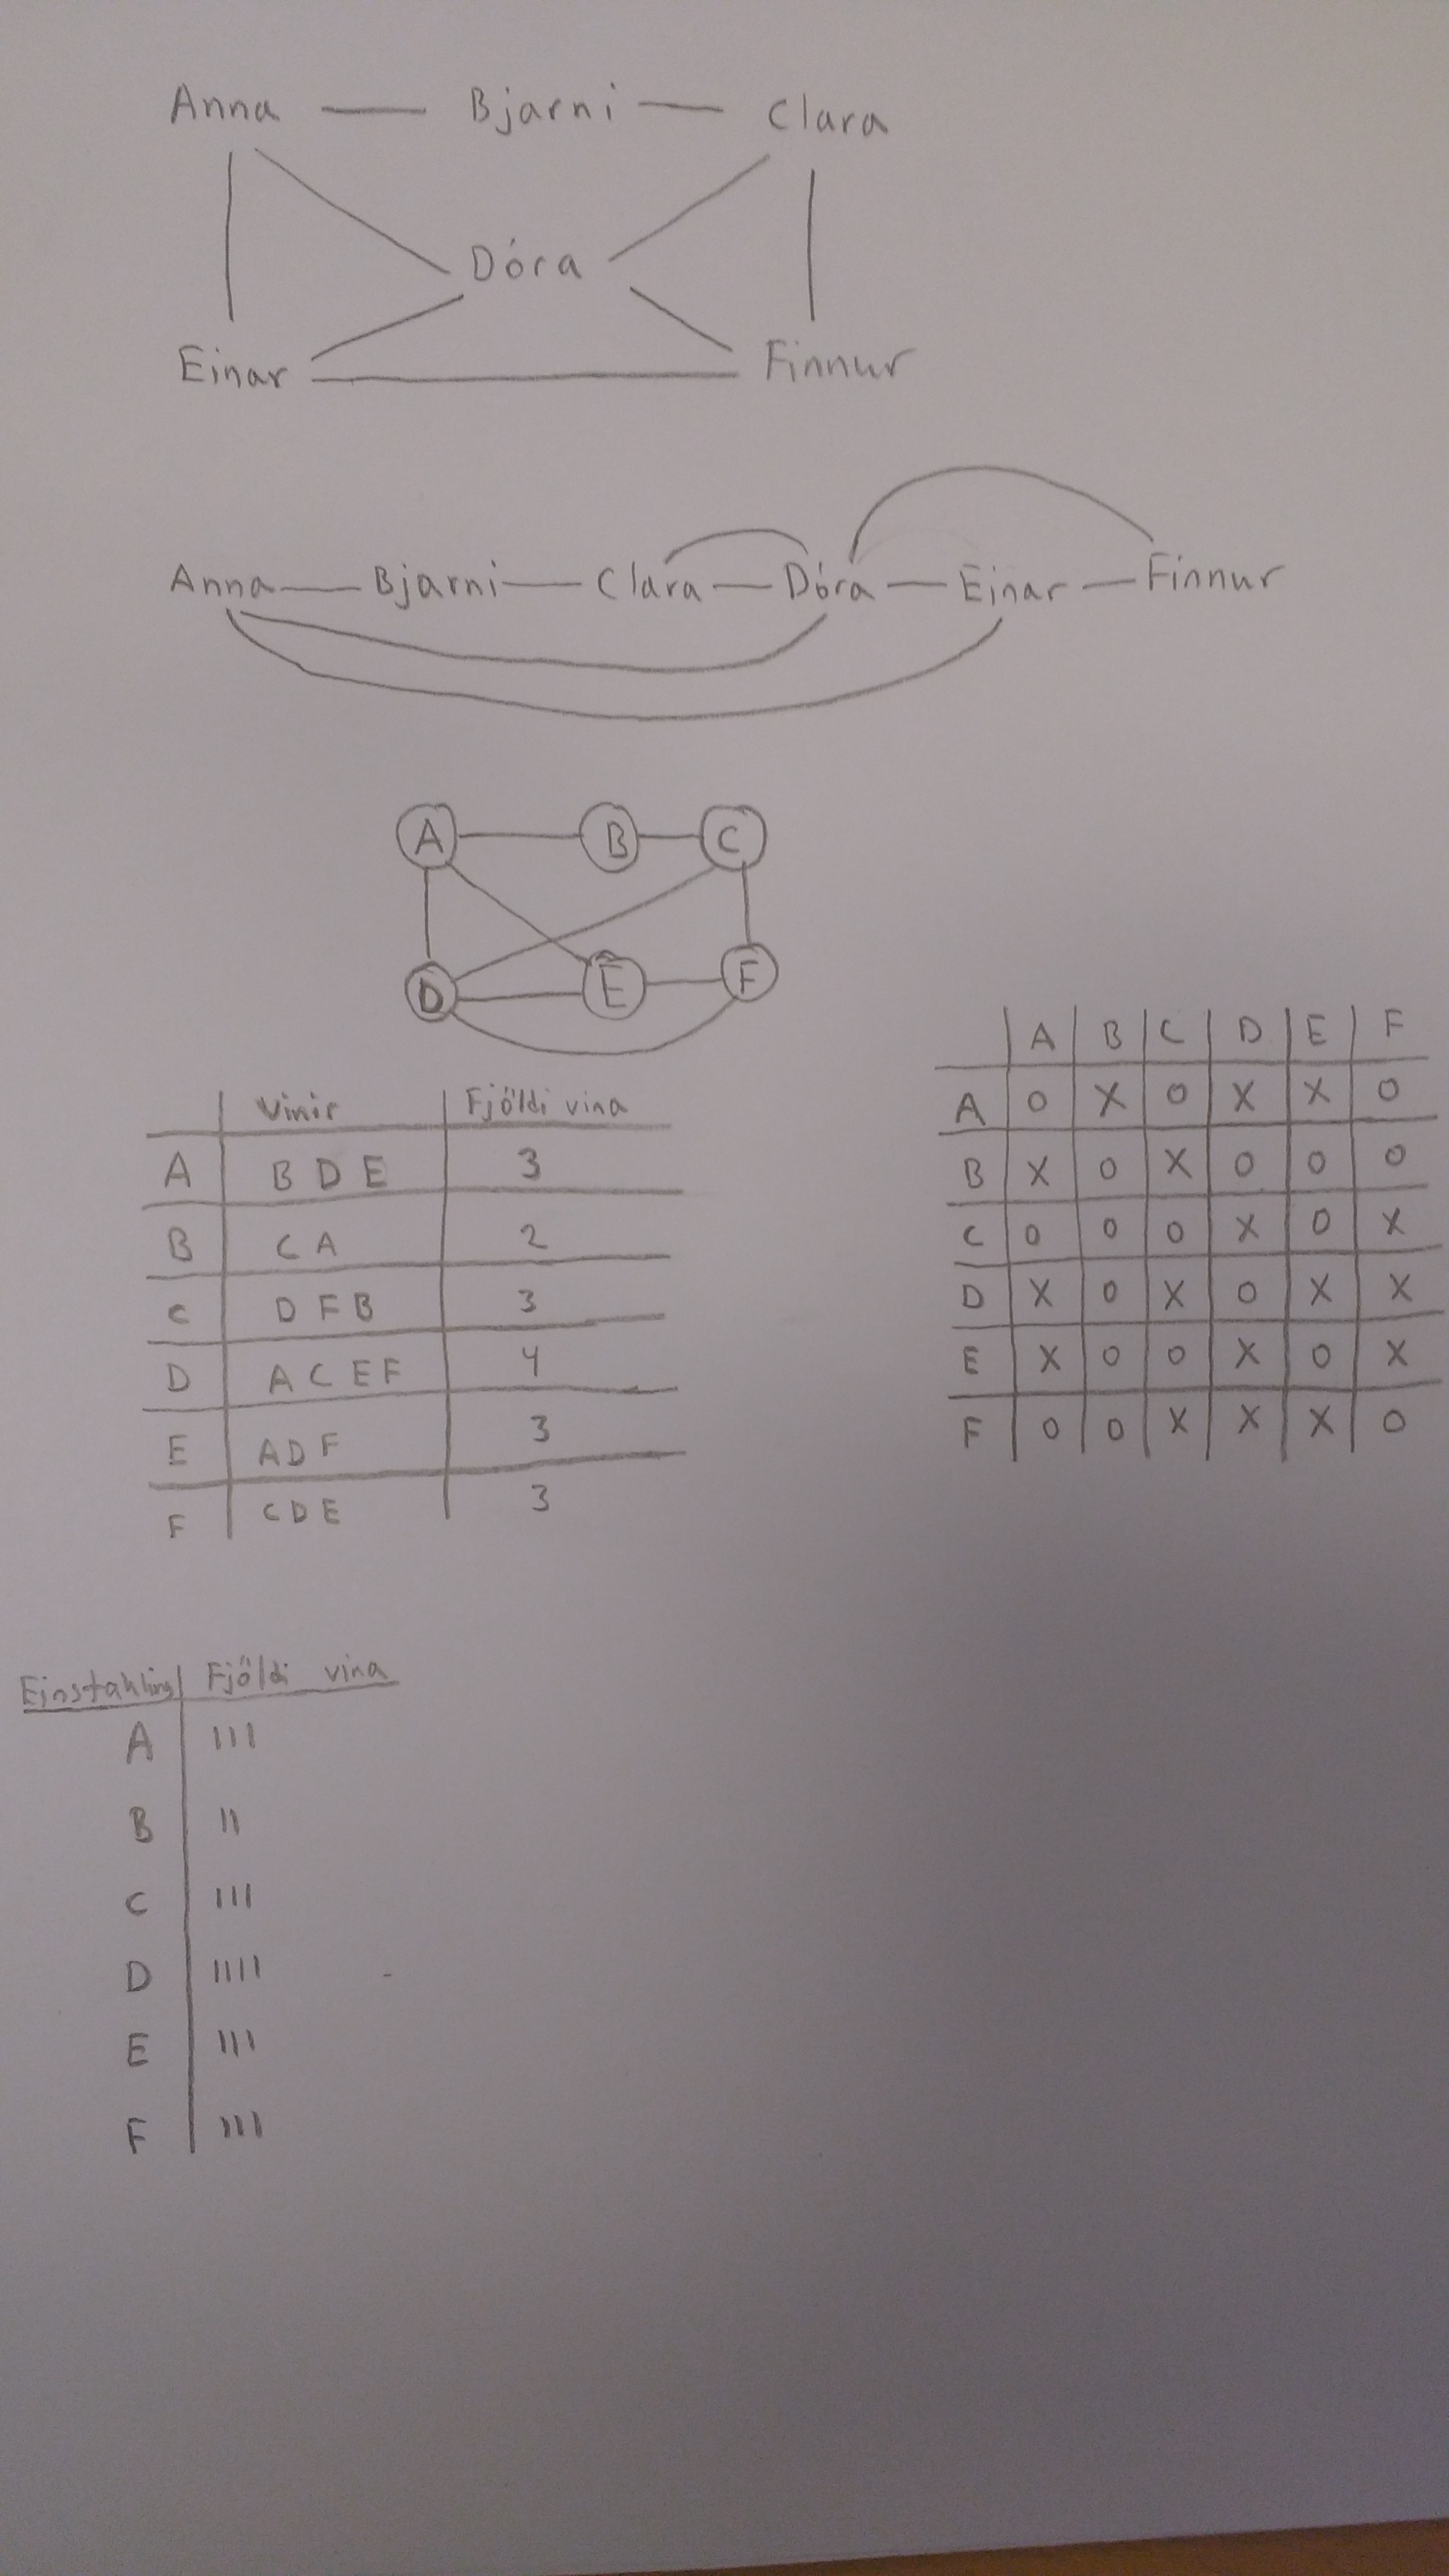 Anna Bjarni Clara
Dóra
Einar Finnur
Anna Bjarni Clara Dóra Einar Finnur
A B C
D E F
Vinir Fjöldi vina
A B D E 3
B C A 2
C D F B 3
D A C E F 4
E A D F 3
F C D E 3
A B C D E F
A O X O X X O
B X O X O O O
C O O O X O X
D X O X O X X
E X O O X O X
F O O X X X O
Fjöldi vina
A III
B II
C III
D IIII
E III
F III